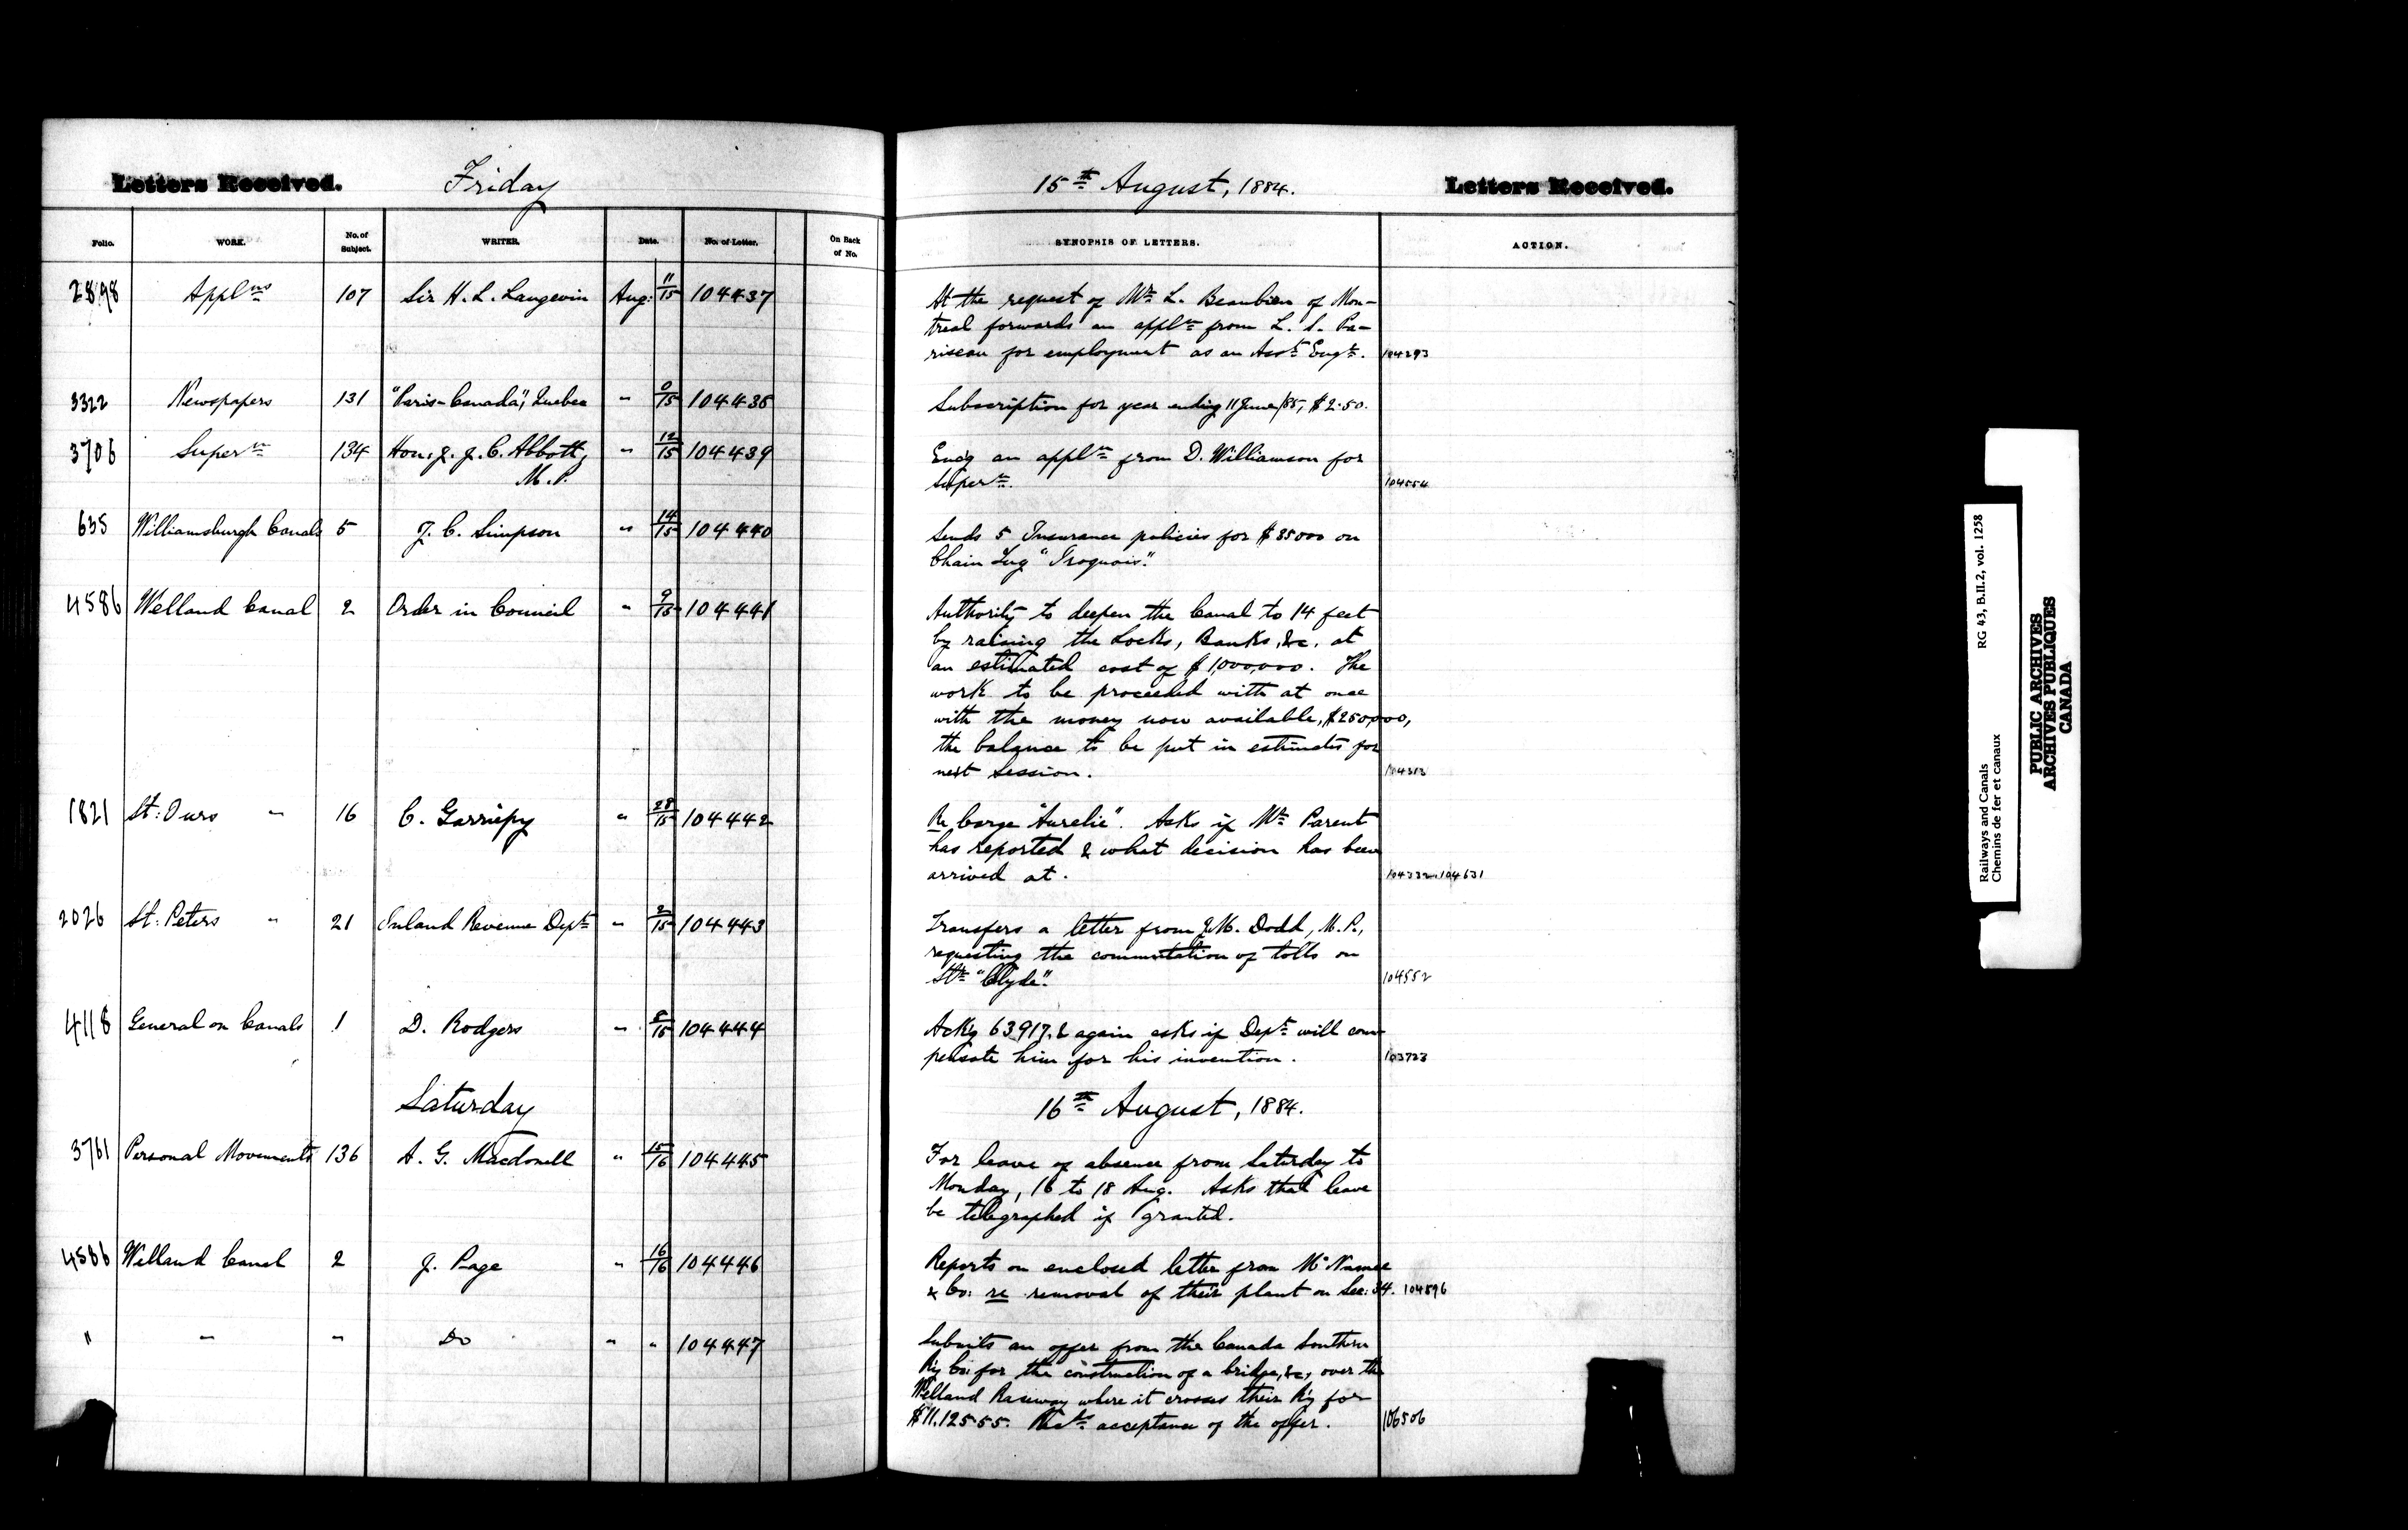 Letters Received. Friday
15th August, 1884. Letters Received.
Folio. WORK. No. of Subject. WRITER. Date. No. of Letter. On Back of No. SYNOPSIS OF LETTERS. ACTION.
2898 Applns 107 Sir H. L. Langevin Aug: 11/15 104437
At the request of Mr. L. Beaubien of Mon-
treal forwards an appln from L. S. Pa-
riseau for employment as an Asst. Engr. 104293
3322 Newspapers 131 "Paris-Canada", Quebec " 9/15 104438
Subscription for year ending 11 June/85, $2.50.
3706 Supern 134 Hon. J. J. C. Abbott, " 12/15 104439
M.P.
Encg an appln from D. Williamson for
Supern. 104554
635 Williamsburgh Canals 5 J. C. Simpson " 14/15 104440
Sends 5 Insurance policies for $35000 on
Chain Tug "Iroquois".
4586 Welland Canal 2 Order in Council " 9/15 104441
Authority to deepen the Canal to 14 feet
by raising the Locks, Banks, &c. at
an estimated cost of $1,000,000. The
work to be proceeded with at once
with the money now available, $250,000,
the balance to be put in estimates for
next Session. 104313
1821 St: Ours " 16 C. Garriépy " 28/15 104442
Re barge "Aurelie". Asks if Mr. Parent
has reported & what decision has been
arrived at. 104332 . 104631
2026 St: Peters " 21 Inland Revenue Dept " 2/15 104443
Transfers a letter from J. M. Dodd, M.P.,
requesting the commutation of tolls on
Str "Clyde". 104552
4118 General on Canals 1 D. Rodgers " 8/15 104444
Ackg 63917, & again asks if Dept. will com-
pensate him for his invention. 103723
Saturday
16th August, 1884.
3761 Personal Movements 136 A. G. Macdonell " 15/16 104445
For leave of absence from Saturday to
Monday, 16 to 18 Aug. Asks that leave
be telegraphed if granted.
4586 Welland Canal 2 J. Page " 16/16 104446
Reports on enclosed letter from McNamee
& Co: re removal of their plant on Sec: 34. 104896
" " " Do " " 104447
Submits an offer from the Canada Southern
Ry Co: for the construction of a bridge, &c, over the
Welland Raceway where it crosses their Ry for
$11.125.55. acceptance of the offer. 106506
Railways and Canals RG 43, B.II.2, vol. 1258
Chemins de fer et canaux
PUBLIC ARCHIVES
ARCHIVES PUBLIQUES
CANADA